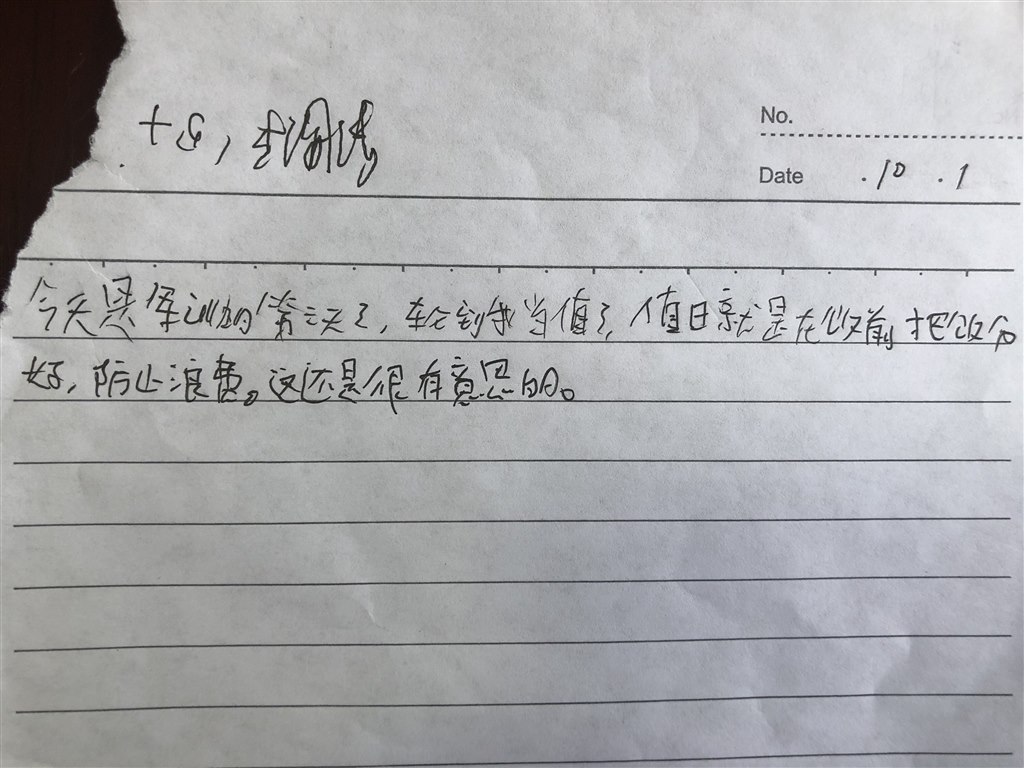 No.
Date .10 .1
今天是军训的第三天了,轮到我当值了,值日就是在饭前把饭分
好,防止浪费。这还是很有意思的。